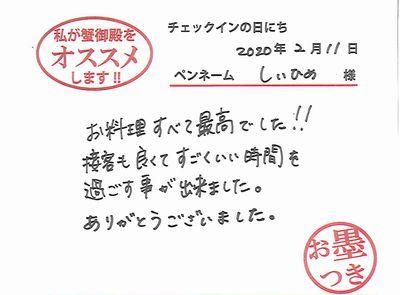 私が蟹御殿を
オススメ
します!!
チェックインの日にち
2020年2月11日
ペンネーム しぃひめ 様
お料理すべて最高でした!!
接客も良くてすごくいい時間を
過ごす事が出来ました。
ありがとうございました。
お墨
つき